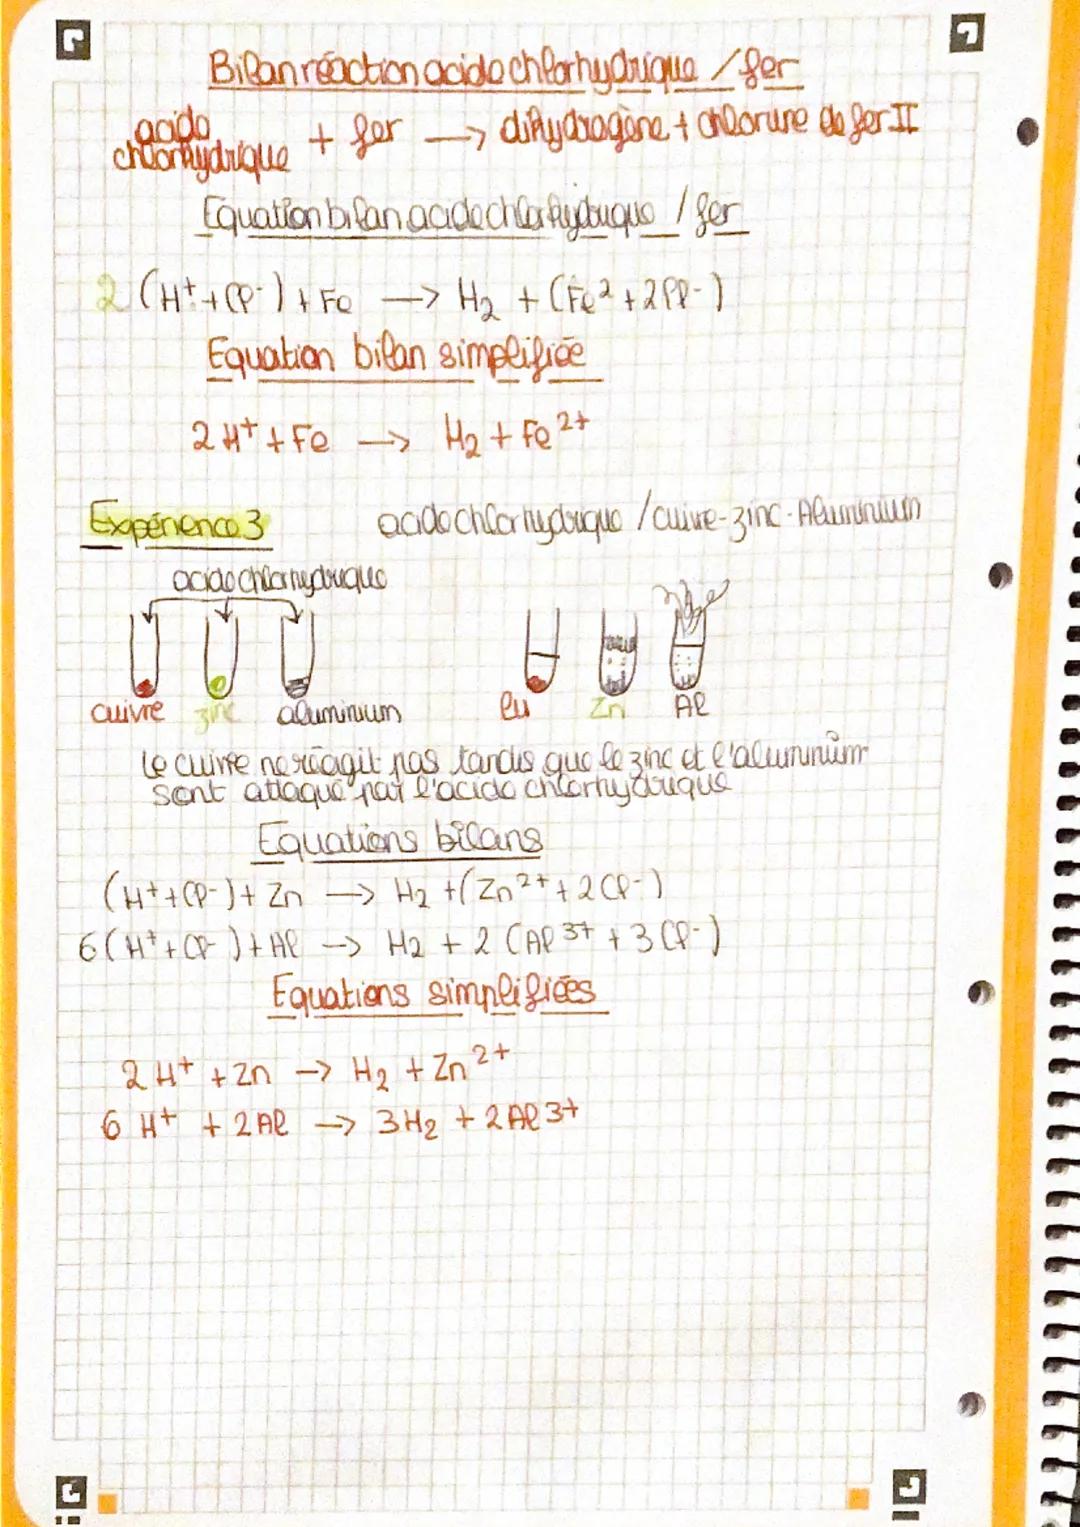 Bilan réaction acide chlorhydrique / fer
acide chlorhydrique + fer → dihydrogène + chlorure de fer II
Equation bilan acide chlorhydrique / fer
2 (H⁺ + Cl⁻) + Fe → H₂ + (Fe² + 2Cl⁻)
Equation bilan simplifiée
2 H⁺ + Fe → H₂ + Fe²⁺
Expérience 3 acide chlorhydrique / cuivre-zinc-Aluminium
acide chlorhydrique
cuivre zinc aluminium Cu Zn Al
le cuivre ne réagit pas tandis que le zinc et l'aluminium
sont attaqué par l'acide chlorhydrique
Equations bilans
(H⁺ + Cl⁻) + Zn → H₂ + (Zn²⁺ + 2Cl⁻)
6 (H⁺ + Cl⁻) + Al → H₂ + 2 (Al³⁺ + 3Cl⁻)
Equations simplifiées
2 H⁺ + Zn → H₂ + Zn²⁺
6 H⁺ + 2Al → 3H₂ + 2Al³⁺